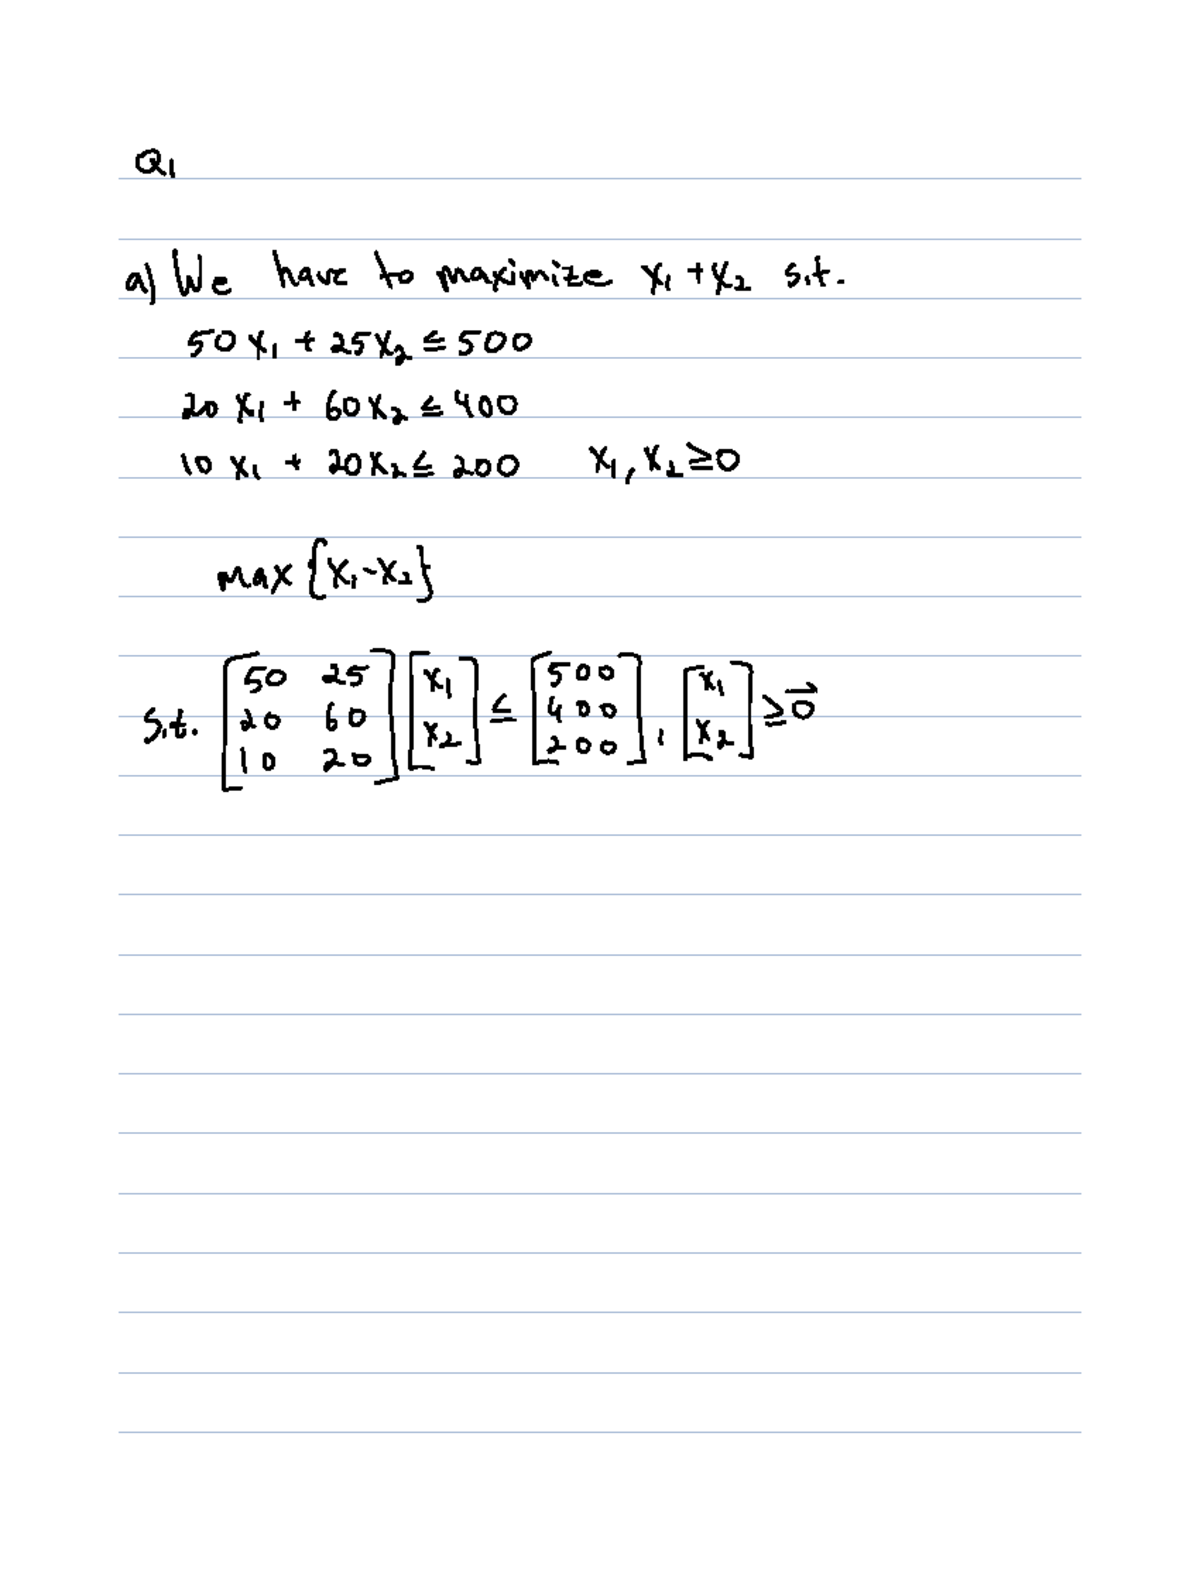 Q1
a) We have to maximize x₁ + x₂ s.t.
50 x₁ + 25 x₂ ≤ 500
20 x₁ + 60 x₂ ≤ 400
10 x₁ + 20 x₂ ≤ 200 x₁, x₂ ≥ 0
max {x₁ - x₂}
s.t. [50 25; 20 60; 10 20] [x₁; x₂] ≤ [500; 400; 200], [x₁; x₂] ≥ 0⃗